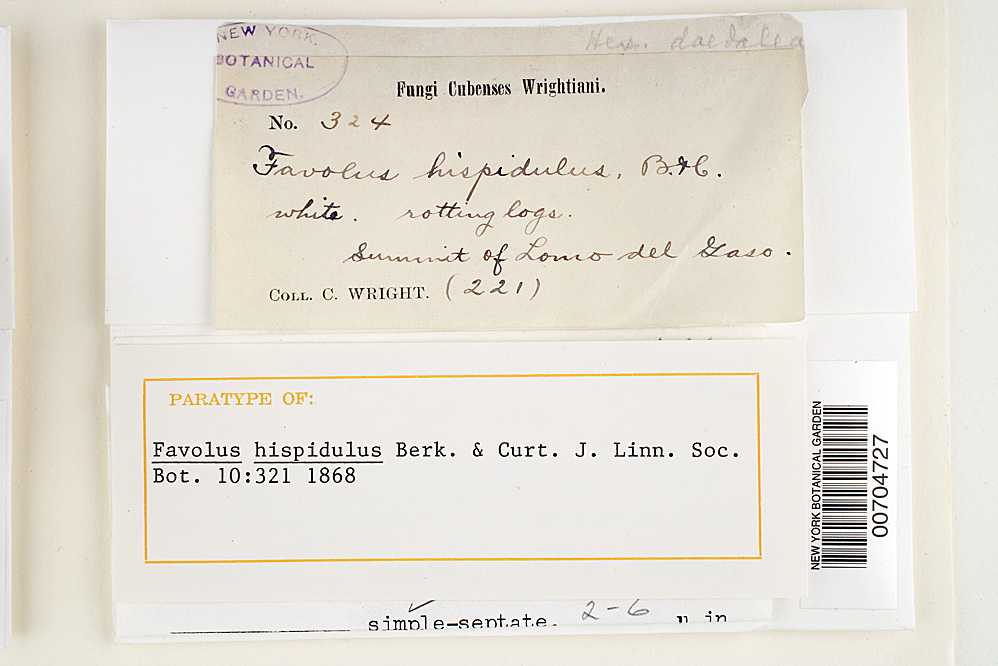 NEW YORK.
BOTANICAL
GARDEN.
Hex. daedalea
Fungi Cubenses Wrightiani.
No. 324
Favolus hispidulus, B.&C.
white. rotting logs.
Summit of Lomo del Gaso.
COLL. C. WRIGHT. (221)
PARATYPE OF:
Favolus hispidulus Berk. & Curt. J. Linn. Soc.
Bot. 10:321 1868
NEW YORK BOTANICAL GARDEN
00704727
simple-septate. 2-6 µ in